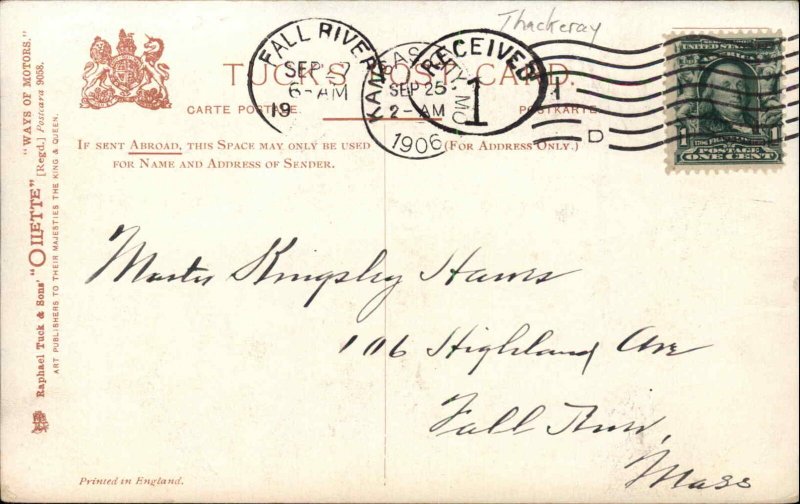 Thackeray
TUCK'S POST CARD.
CARTE POSTALE. POSTKARTE.
IF SENT ABROAD, THIS SPACE MAY ONLY BE USED
FOR NAME AND ADDRESS OF SENDER.
(FOR ADDRESS ONLY.)
FALL RIVER
SEP 27
6-AM
19
KANSAS CITY, MO.
SEP 25
2-AM
1906
RECEIVED
1
D
UNITED STATES OF AMERICA
1 1
POSTAGE
ONE CENT
Raphael Tuck & Sons' "OILETTE" [Regd.] Postcard 9058.
"WAYS OF MOTORS."
ART PUBLISHERS TO THEIR MAJESTIES THE KING & QUEEN.
Master Kingsley Hawes
106 Highland Ave
Fall River,
Mass
Printed in England.